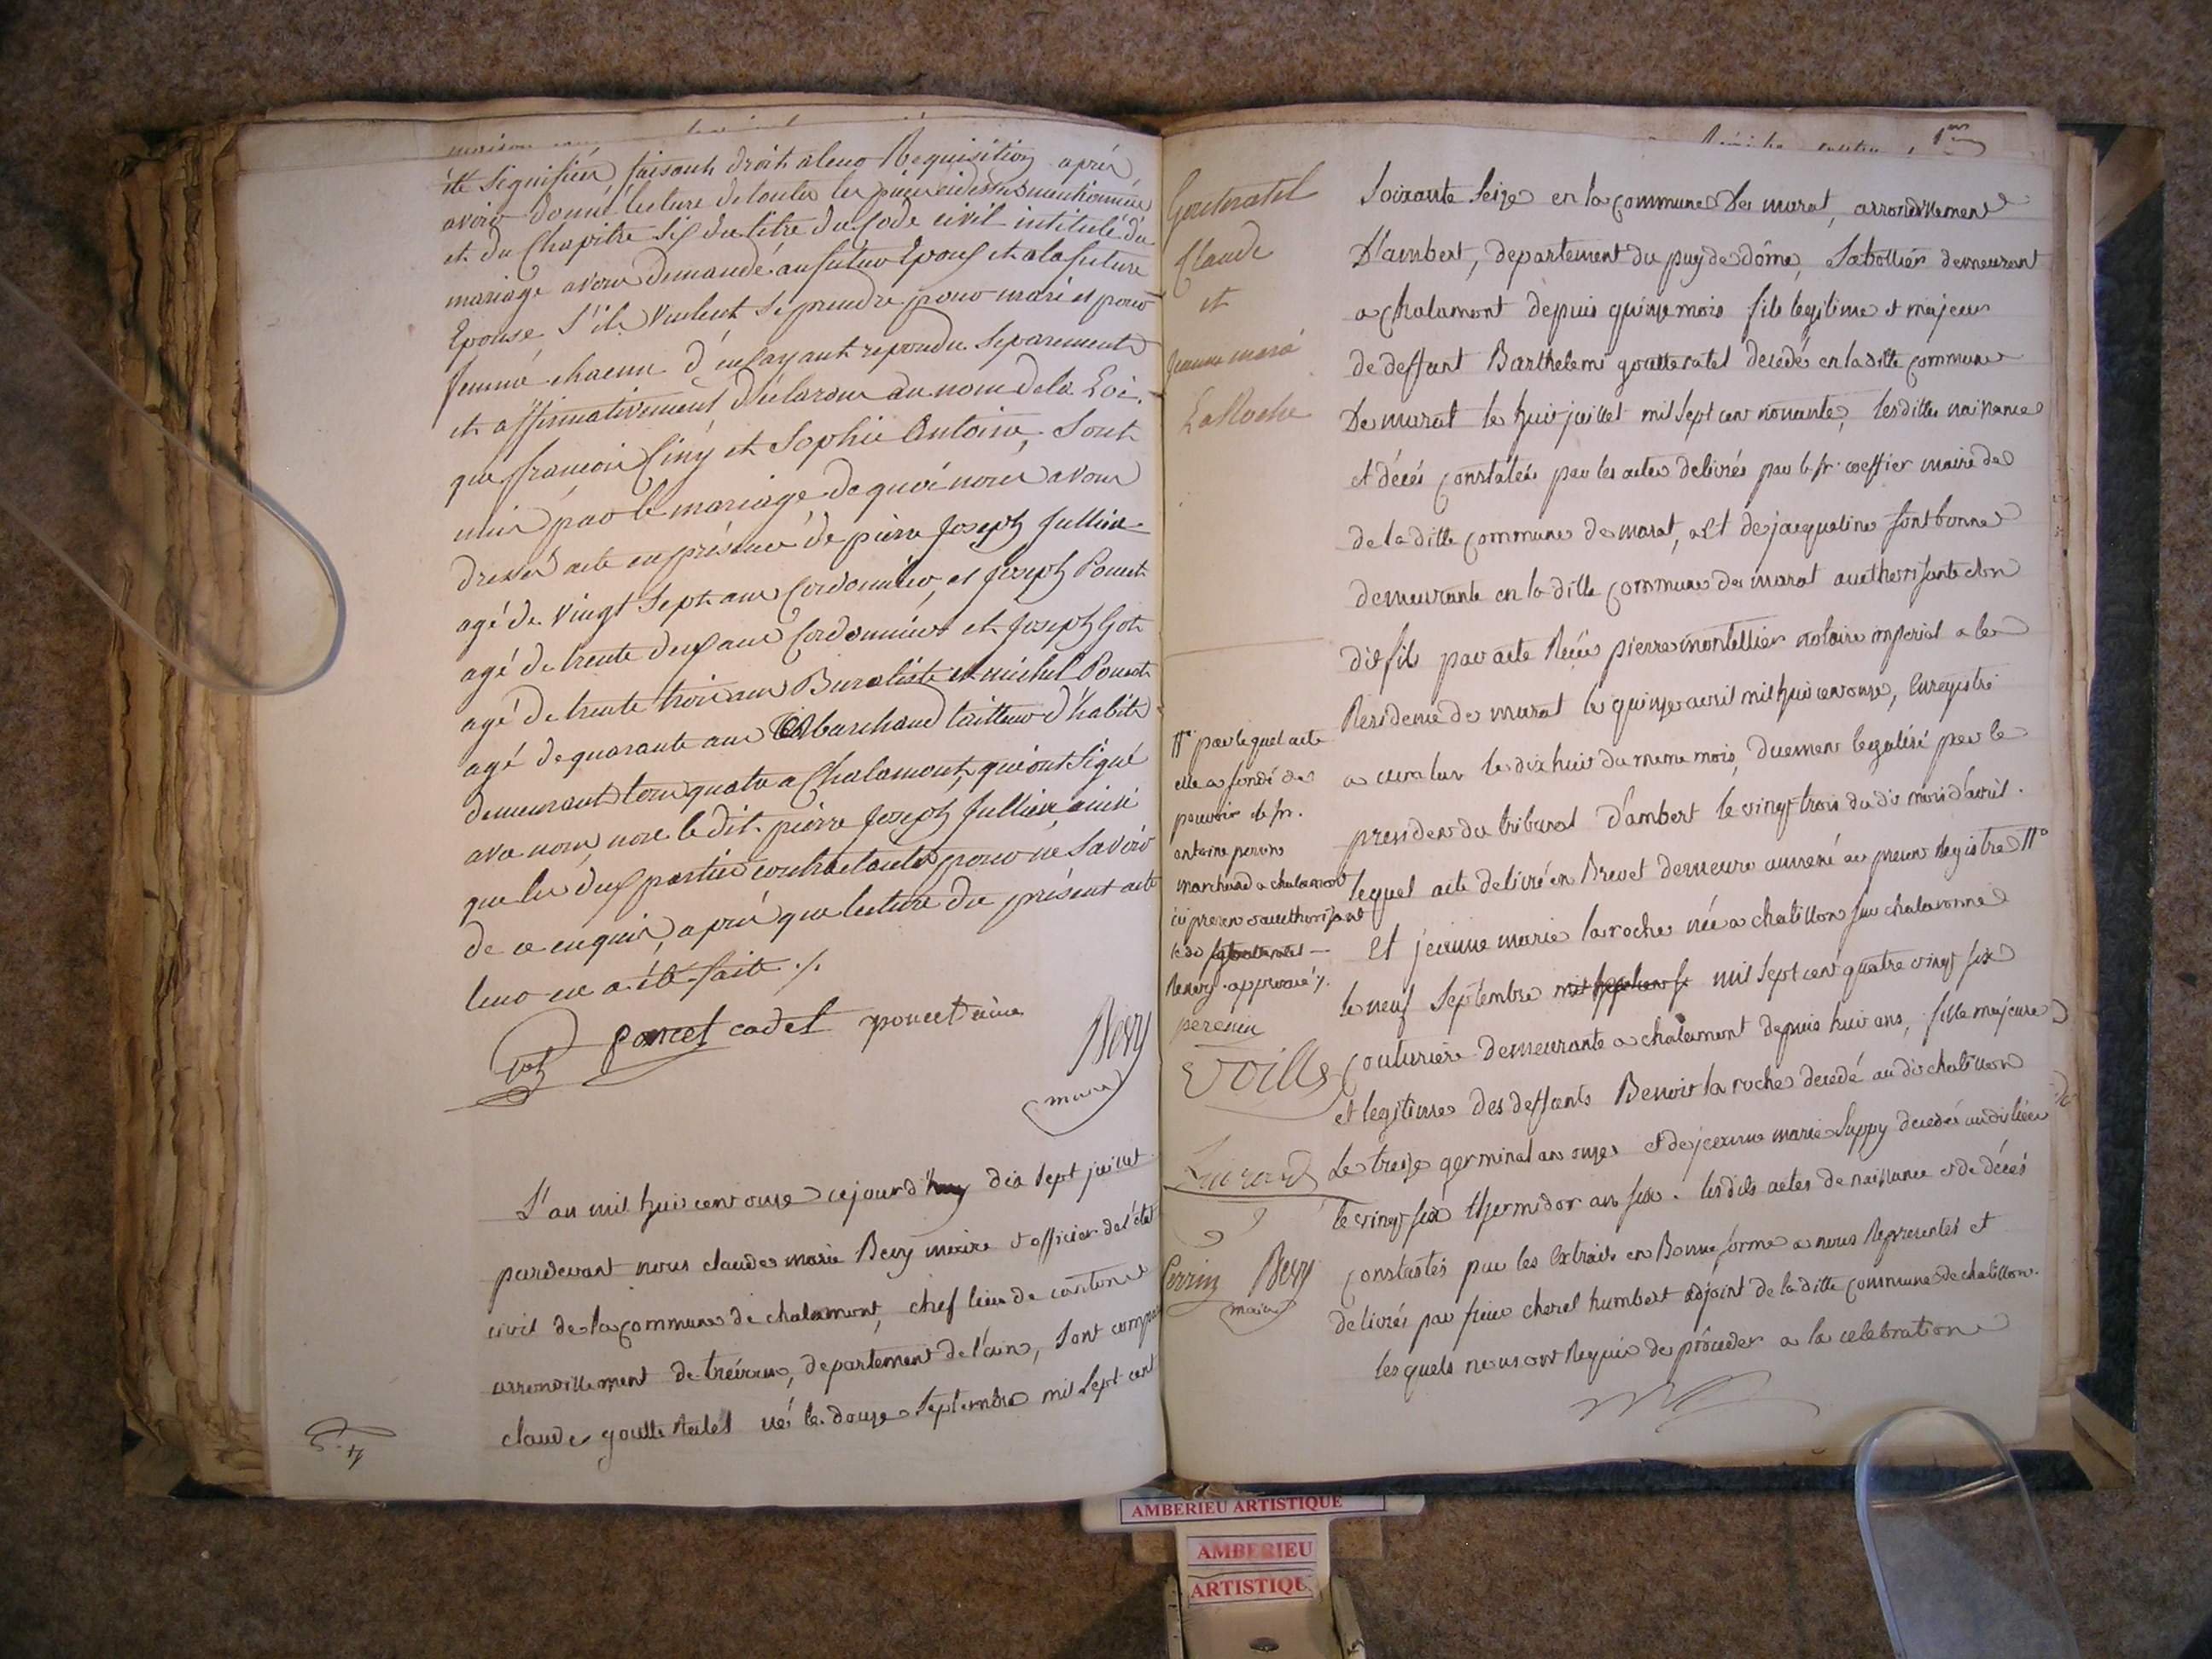 été signifiér, faisant droit a leur Requisition après
avoir donné lecture de toutes les pièces ci dessus mentionnées
et du Chapitre Six du titre du Code civil intitulé du
mariage avons demandé au futur Epoux et a la future
Epouse s'ils veulent se prendre pour mari et pour
femme chacun d'eux ayant repondu separement
et affirmativement déclarons au nom de la Loi,
que françois Ciny et Sophie Antoine, Sont
unis par le mariage, de quoi nous avons
dressés acte en présence de pierre Joseph Jullien
agé de vingt Sept ans Cordonnier, et Joseph Poncet
agé de trente deux ans Cordonnier et Joseph Got
agé de trente trois ans Buraliste et michel Poncet
agé de quarante ans Marchand tailleur d'habits
demeurant tous quatre a Chalamont, qui ont signé
avec nous, non le dit pierre Joseph Jullien ainsi
que les deux parties contractantes pour ne Savoir
de ce enquis, après que lecture du présent acte
leur en a été faite ./.
Got poncet cadet poncet ainé Bevy
maire
L'an mil huit cent onze cejourd'huy dix sept juillet
pardevant nous claude marie Bevy maire et officier de l'état
civil de la commune de chalamont, chef lieu de canton
arrondissement de trévoux, departement de l'ain, sont compa
claude goutte Ratel né le douze septembre mil sept cent
Goutteratel
Claude
et
Jeanne marie
LaRoche
soixante seize en la commune de marat, arrondissement
D'ambert, departement du puy de dôme, Sabottier demeurant
a chalamont depuis quinze mois fils legitime et majeur
de deffunt Barthelemi goutteratel decedé en la ditte commune
De marat le huit juillet mil sept cent nonante, lesdittes naissance
et décés constatés par les actes delivrés par le sr. coeffier maire de
de la ditte commune de marat, et de jacqueline fontbonne
demeurante en la ditte commune de marat authorisante son
dit fils par acte Reçu pierre montellier notaire imperial a la
Residence de marat le quinze avril mil huit cent onze, Enregistré
a cunlhat le dix huit du meme mois, duement legalisé par le
president du tribunal d'ambert le vingt trois du dit mois d'avril.
lequel acte delivré en Brevet demeure annexé au present Registre #
# par lequel acte
elle a fondé de
pouvoir le sr.
antoine perrin
marchand a chalamont
ici present authorisant
le dt goutteratel
Renvoy approuvé ./.
perrin
Et jeanne marie laroche née a chatillon sur chalaronne
le neuf septembre mil sept cent quatre vingt six
couturiere demeurante a chalamont depuis huit ans, fille majeure
et legitime des deffunts Benoit la roche decedé au dit chatillon
Le treize germinal an onze et de jeanne marie Suppy decedée audit lieu
le vingt six thermidor an six. lesdits actes de naissance et de décés
constatés par les Extraits en Bonne forme a nous Representés et
delivrés par sieur cherel humbert adjoint de la ditte commune de chatillon.
lesquels nous ont Requis de procéder a la celebration
Perrin Bevy
maire
AMBERIEU ARTISTIQUE
AMBERIEU
ARTISTIQU